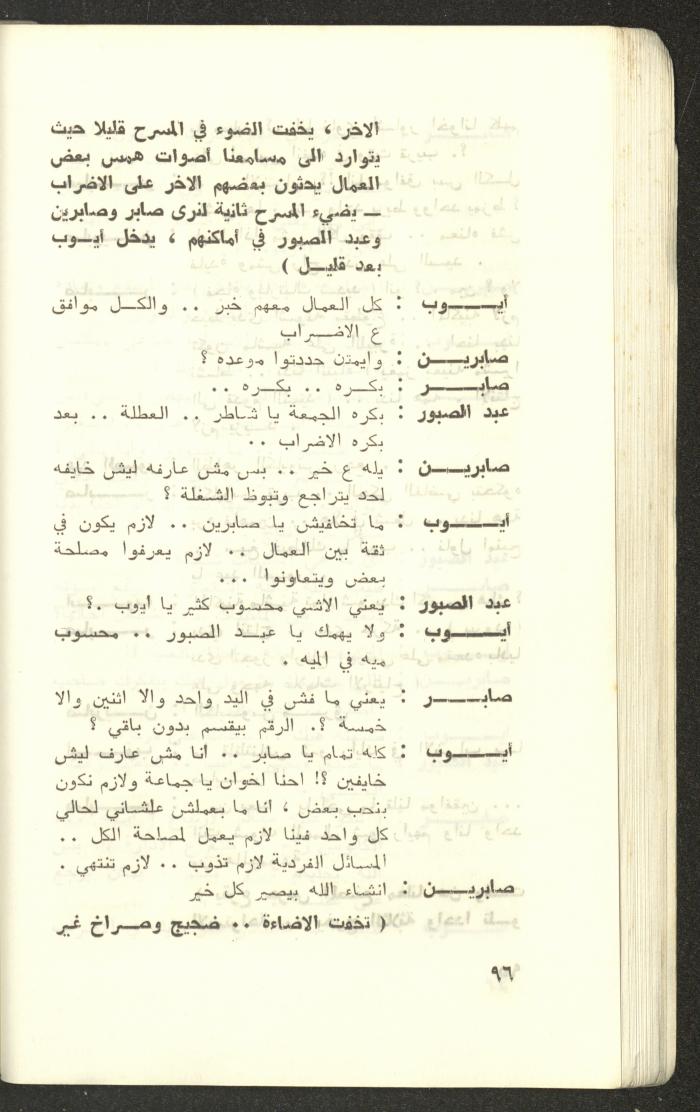 الاخر ، يخفت الضوء في المسرح قليلا حيث
يتوارد الى مسامعنا أصوات همس بعض
العمال يحثون بعضهم الاخر على الاضراب
ــ يضيء المسرح ثانية لنرى صابر وصابرين
وعبد الصبور في أماكنهم ، يدخل أيــوب
بعد قليــل )
أيـــــوب : كل العمال معهم خبر .. والكــل موافق
ع الاضــراب
صابريــــن : وايمتن حددتوا موعده ؟
صابـــــر : بكــره .. بكــره ..
عبد الصبور : بكره الجمعة يا شاطر .. العطلة .. بعد
بكره الاضراب ..
صابريــــن : يله ع خير .. بس مش عارفه ليش خايفه
لحد يتراجع وتبوظ الشغلة ؟
أيـــــوب : ما تخافيش يا صابرين .. لازم يكون في
ثقة بين العمال .. لازم يعرفوا مصلحة
بعض ويتعاونوا ...
عبد الصبور : يعني الاشي محسوب كثير يا أيوب .؟
أيـــــوب : ولا يهمك يا عبــد الصبور .. محسوب
ميه في الميه .
صابـــــر : يعني ما فش في اليد واحد والا اثنين والا
خمسة ؟. الرقم بيقسم بدون باقي ؟
أيـــــوب : كله تمام يا صابر .. انا مش عارف ليش
خايفين ؟! احنا اخوان يا جماعة ولازم نكون
بنحب بعض ، انا ما بعملش علشاني لحالي
كل واحد فينا لازم يعمل لمصلحة الكل ..
المسائل الفردية لازم تذوب .. لازم تنتهي .
صابريــــن : انشاء الله بيصير كل خير
( تخفت الاضاءة .. ضجيج وصــراخ غير
٩٦